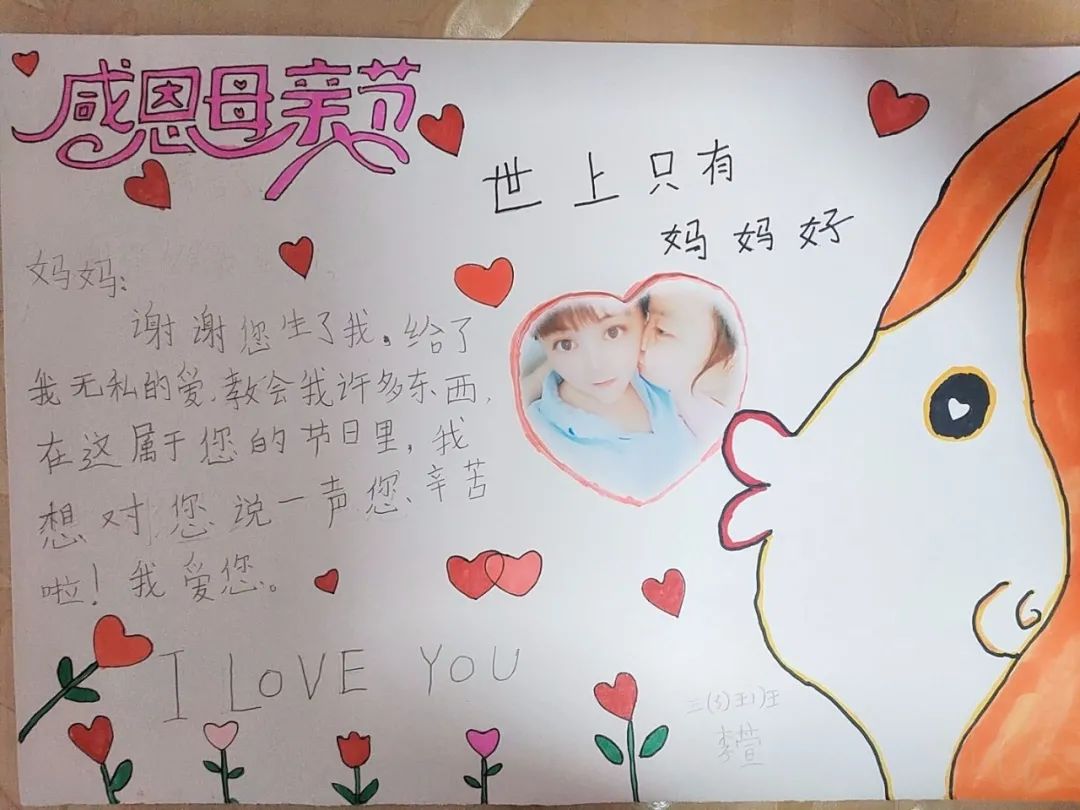 感恩母亲节
世上只有
妈妈好
妈妈:
谢谢您生了我。给了
我无私的爱、教会我许多东西,
在这属于您的节日里,我
想对您说一声您、辛苦
啦!我爱您。
I LOVE YOU
李萱